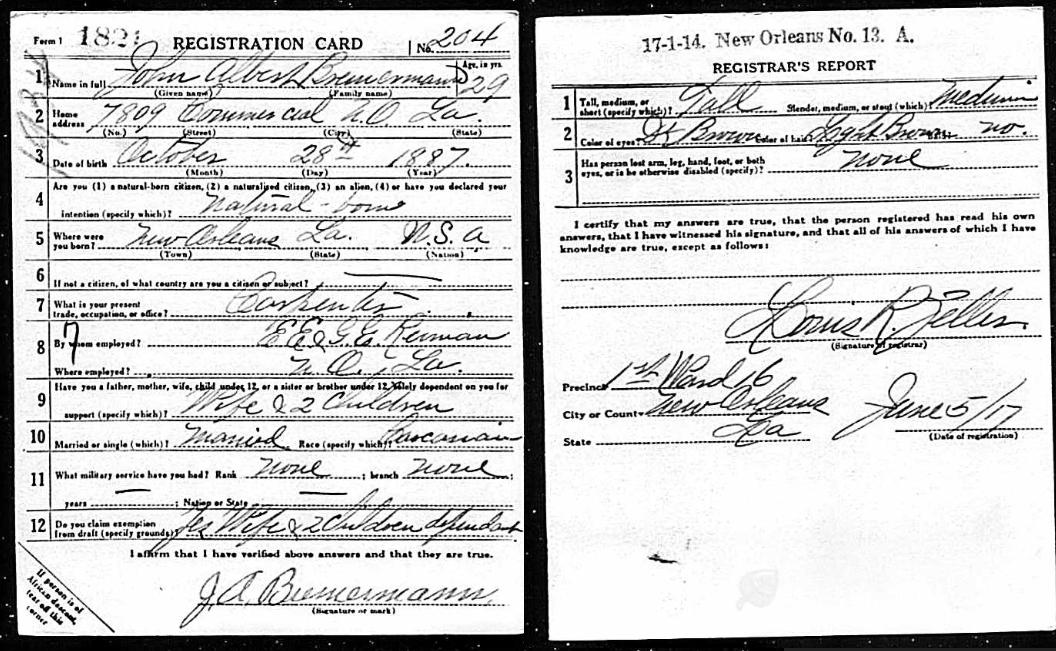 Form 1 1821 REGISTRATION CARD No. 204
1 Name in full John Albert Bremermann Age, in yrs. 29
(Given name) (Family name)
2 Home address 7809 Commercial N O La.
(No.) (Street) (City) (State)
3 Date of birth October 28th 1887.
(Month) (Day) (Year)
4 Are you (1) a natural-born citizen, (2) a naturalized citizen, (3) an alien, (4) or have you declared your
intention (specify which)? Natural-born
5 Where were you born? New Orleans La. U.S.a
(Town) (State) (Nation)
6 If not a citizen, of what country are you a citizen or subject?
7 What is your present trade, occupation, or office? Carpenter
8 By whom employed? E E & G. E. Reiman
Where employed? N. O., La.
9 Have you a father, mother, wife, child under 12, or a sister or brother under 12, solely dependent on you for
support (specify which)? Wife & 2 Children
10 Married or single (which)? Married Race (specify which)? Caucasian
11 What military service have you had? Rank None ; branch None ;
years ; Nation or State
12 Do you claim exemption from draft (specify grounds)? Yes Wife & 2 Children dependant
I affirm that I have verified above answers and that they are true.
J. A. Bremermann
(Signature or mark)
If person is of
African descent,
tear off this
corner
17-1-14. New Orleans No. 13. A.
REGISTRAR'S REPORT
1 Tall, medium, or short (specify which)? Tall Slender, medium, or stout (which)? Medium
2 Color of eyes? Dk Brown Color of hair? Light Brown Bald? no.
3 Has person lost arm, leg, hand, foot, or both
eyes, or is he otherwise disabled (specify)? None
I certify that my answers are true, that the person registered has read his own
answers, that I have witnessed his signature, and that all of his answers of which I have
knowledge are true, except as follows:
Louis R. Zeller
(Signature of registrar)
Precinct 1st Ward 16
City or County New Orleans June 5/17
State La (Date of registration)